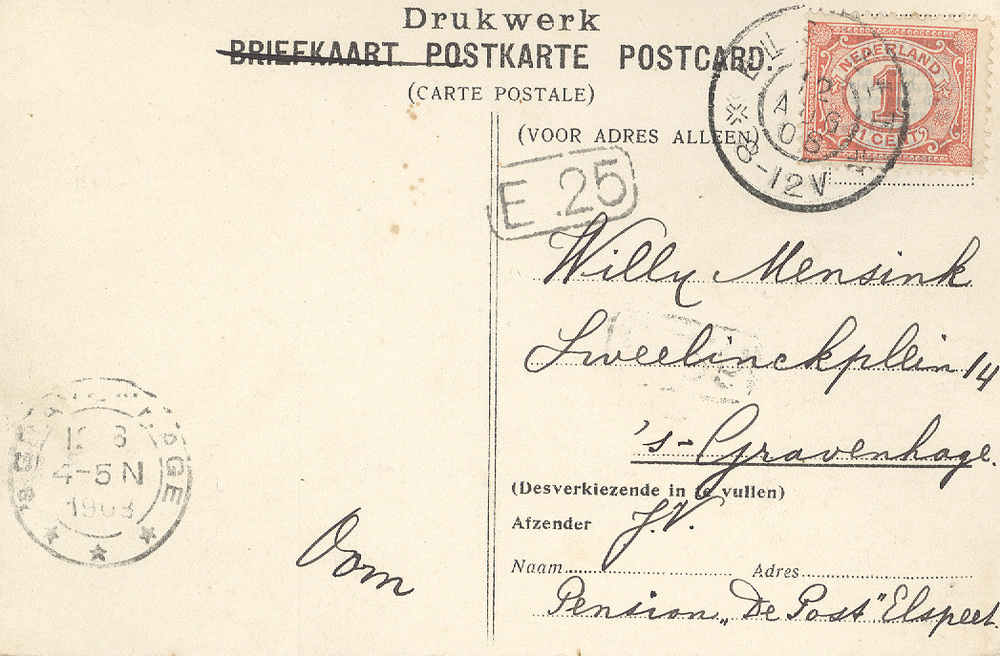 Drukwerk
BRIEFKAART POSTKARTE POSTCARD.
(CARTE POSTALE)
(VOOR ADRES ALLEEN)
NEDERLAND
1
1 CENT
12
AUG
08
8-12V
E 25
Willy Mensink
Sweelinckplein 14
's-Gravenhage.
12 8
4-5N
1908
(Desverkiezende in te vullen)
Afzender J.V.
Naam Adres
Oom
Pension „De Post" Elspeet.